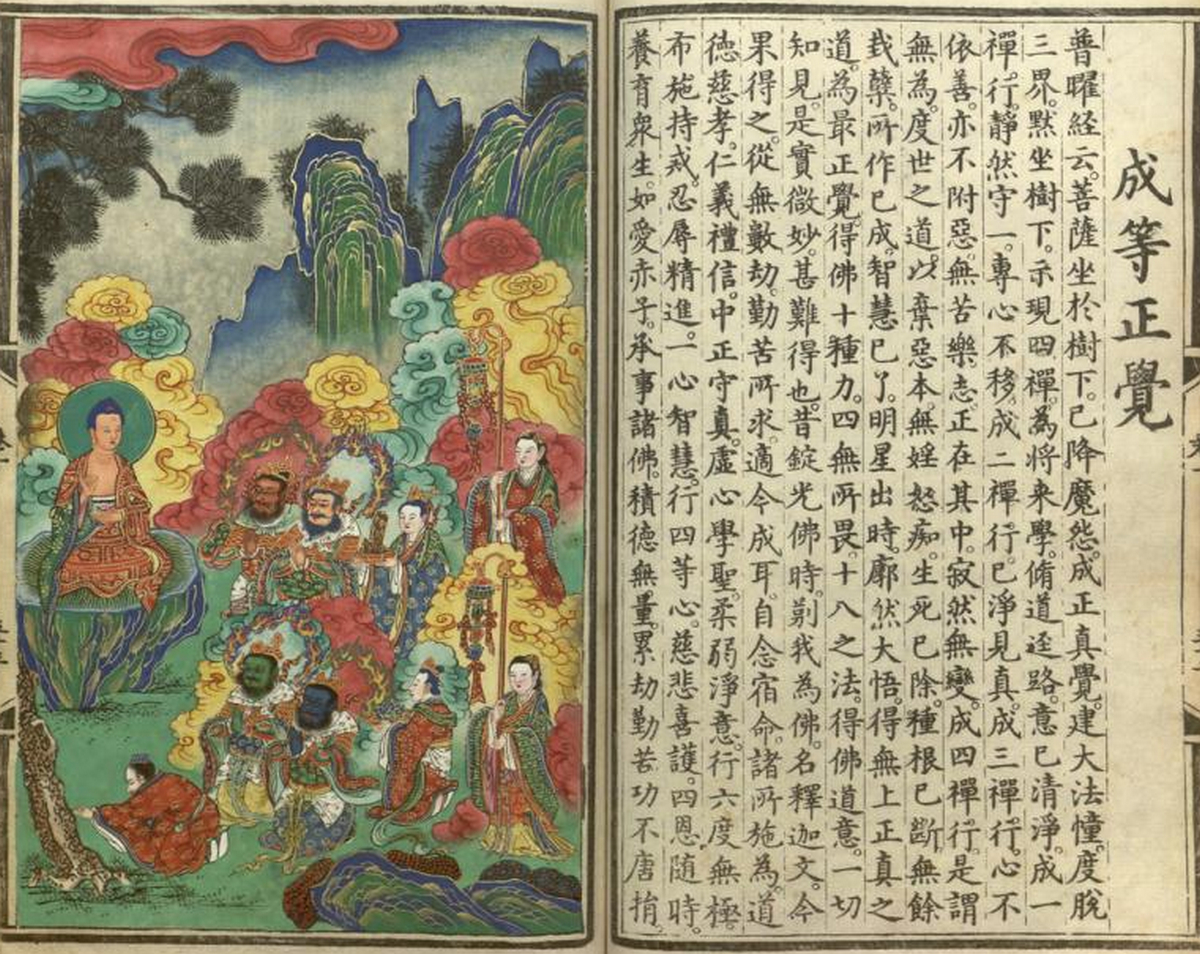 成等正覺
普曜経云。菩薩坐於樹下。已降魔怨。成正真覺。建大法幢。度脫
三界。黙坐樹下。示現四禪。為将来學。脩道逕路。意已清淨。成一
禪行。靜然守一。專心不移。成二禪行。已淨見真。成三禪行。心不
依善。亦不附惡。無苦樂。志正在其中。寂然無變。成四禪行。是謂
無為。度世之道。以棄惡本。無婬怒痴。生死已除。種根已斷。無餘
㦲孽。所作已成。智慧已了。明星出時。廓然大悟。得無上正真之
道。為最正覺。得佛十種力。四無所畏。十八之法。得佛道意。一切
知見。是實微妙。甚難得也。昔錠光佛時。莂我為佛。名釋迦文。今
果得之。從無數劫。勤苦所求。適今成耳。自念宿命。諸所施為。道
徳慈孝。仁義禮信。中正守真。虛心學聖。柔弱淨意。行六度無極。
布施持戒。忍辱精進。一心智慧。行四等心。慈悲喜護。四恩随時。
養育衆生。如愛赤子。承事諸佛。積徳無量。累劫勤苦。功不唐捐。